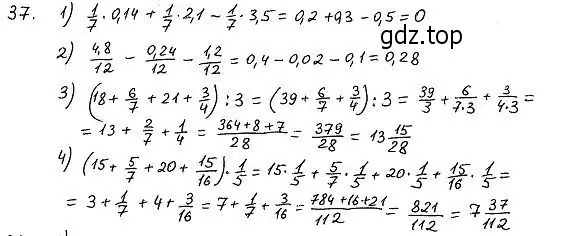 37. 1) 1/7 · 0,14 + 1/7 · 2,1 − 1/7 · 3,5 = 0,2 + 0,3 − 0,5 = 0
gdz.top
2) 4,8/12 − 0,24/12 − 1,2/12 = 0,4 − 0,02 − 0,1 = 0,28
3) (18 + 6/7 + 21 + 3/4) : 3 = (39 + 6/7 + 3/4) : 3 = 39/3 + 6/7·3 + 3/4·3 =
= 13 + 2/7 + 1/4 = 364+8+7/28 = 379/28 = 13 15/28
4) (15 + 5/7 + 20 + 15/16) · 1/5 = 15 · 1/5 + 5/7 · 1/5 + 20 · 1/5 + 15/16 · 1/5 =
= 3 + 1/7 + 4 + 3/16 = 7 + 1/7 + 3/16 = 784+16+21/112 = 821/112 = 7 37/112